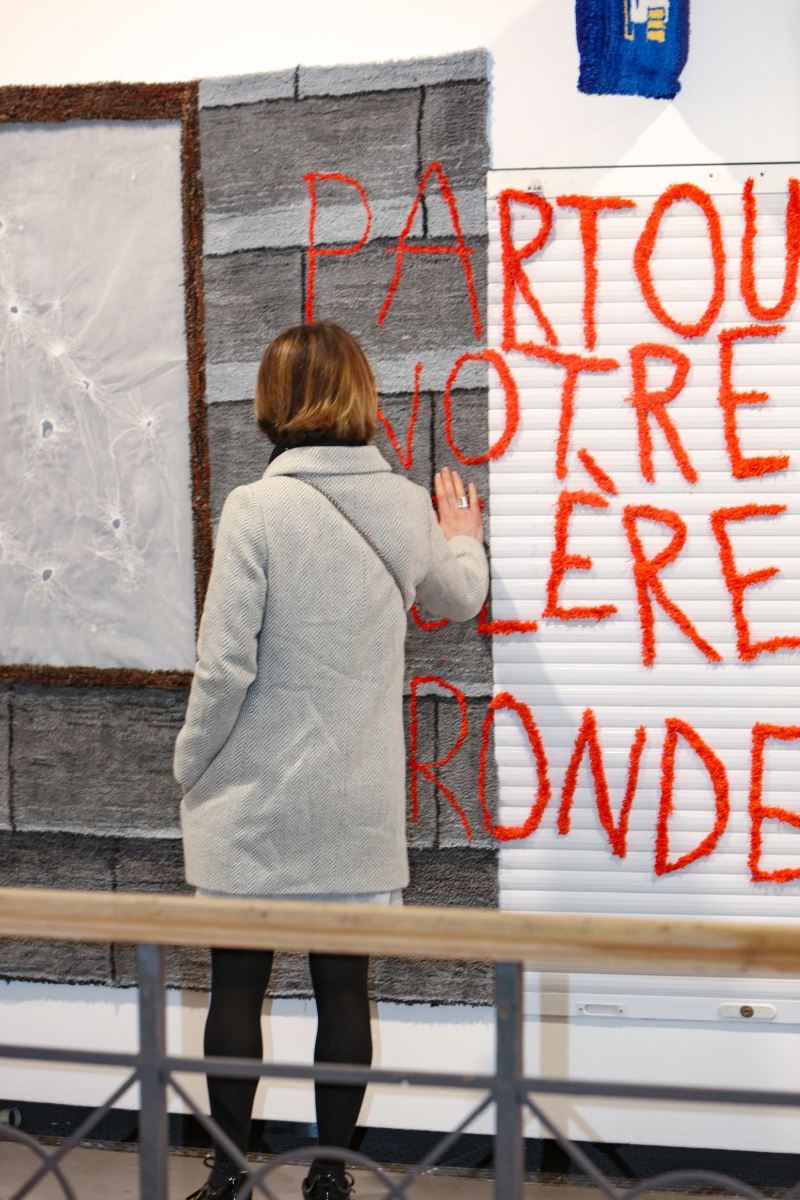 PARTOU
NOTRE
LÈRE
RONDE